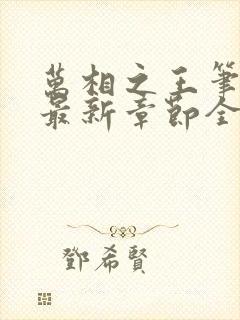 萬相之王筆
最新章節全
鄧希賢